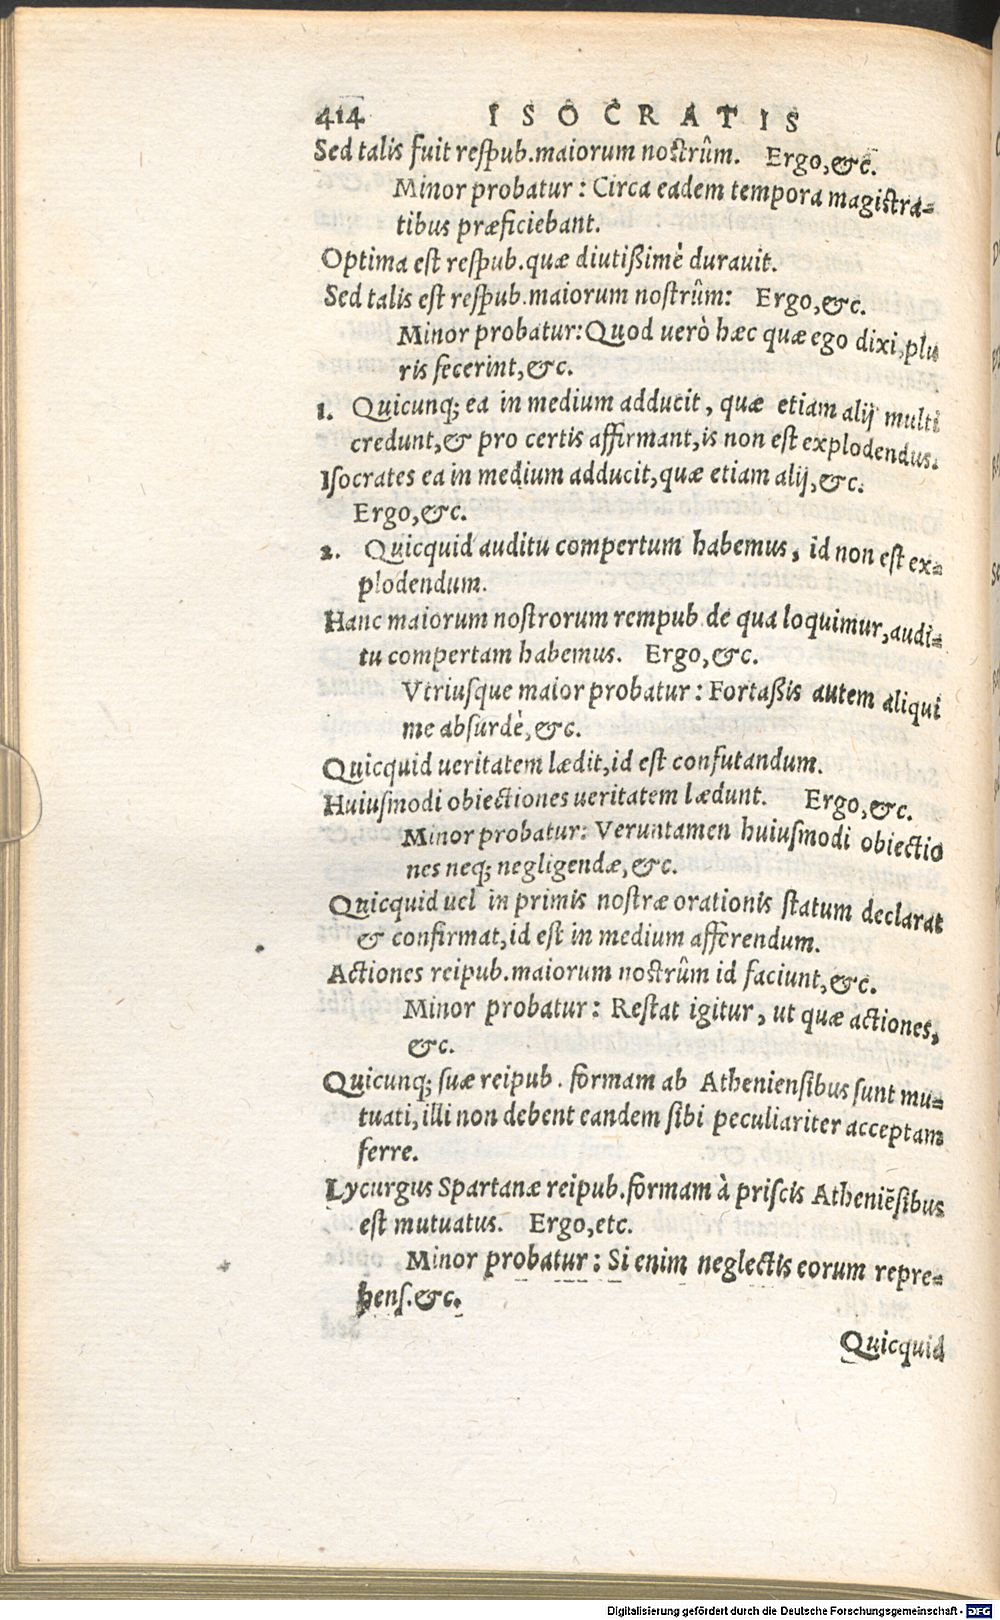 414 ISOCRATIS
Sed talis fuit respub.maiorum nostrûm. Ergo,&c.
Minor probatur: Circa eadem tempora magistra-
tibus præficiebant.
Optima est respub.quæ diutißimè durauit.
Sed talis est respub.maiorum nostrûm: Ergo,&c.
Minor probatur:Quod uerò hæc quæ ego dixi,plu
ris fecerint,&c.
1. Quicunq; ea in medium adducit, quæ etiam alij multi
credunt,& pro certis affirmant,is non est explodendus.
Isocrates ea in medium adducit,quæ etiam alij,&c.
Ergo,&c.
2. Quicquid auditu compertum habemus, id non est ex-
plodendum.
Hanc maiorum nostrorum rempub.de qua loquimur,audi-
tu compertam habemus. Ergo,&c.
Vtriusque maior probatur: Fortaßis autem aliqui
me absurdè,&c.
Quicquid ueritatem lædit,id est confutandum.
Huiusmodi obiectiones ueritatem lædunt. Ergo,&c.
Minor probatur: Veruntamen huiusmodi obiectio
nes neq; negligendæ,&c.
Quicquid uel in primis nostræ orationis statum declarat
& confirmat,id est in medium afferendum.
Actiones reipub.maiorum nostrûm id faciunt,&c.
Minor probatur: Restat igitur, ut quæ actiones,
&c.
Quicunq; suæ reipub. formam ab Atheniensibus sunt mu-
tuati,illi non debent eandem sibi peculiariter acceptam
ferre.
Lycurgus Spartanæ reipub.formam à priscis Atheniẽsibus
est mutuatus. Ergo,etc.
Minor probatur: Si enim neglectis eorum repre-
hens.&c.
Quicquid
Digitalisierung gefördert durch die Deutsche Forschungsgemeinschaft - DFG